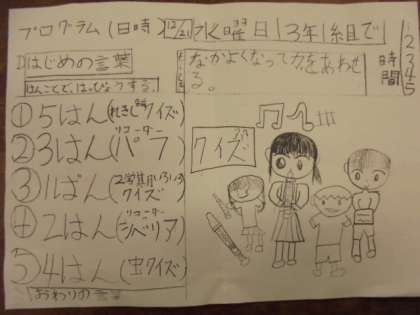 プログラム(日時)12/21水曜日3年1組で
2 3 4 5
時間
はじめの言葉
なかよくなって力をあわせる。
はんごとで、はっぴょうする。
①5はん(れきしクイズ)
②3はん(リコーダーパフ)
③1ぱん(クイズ)
④2はん(リコーダーシベリア)
⑤4はん(虫クイズ)
おわりの言葉
クイズ